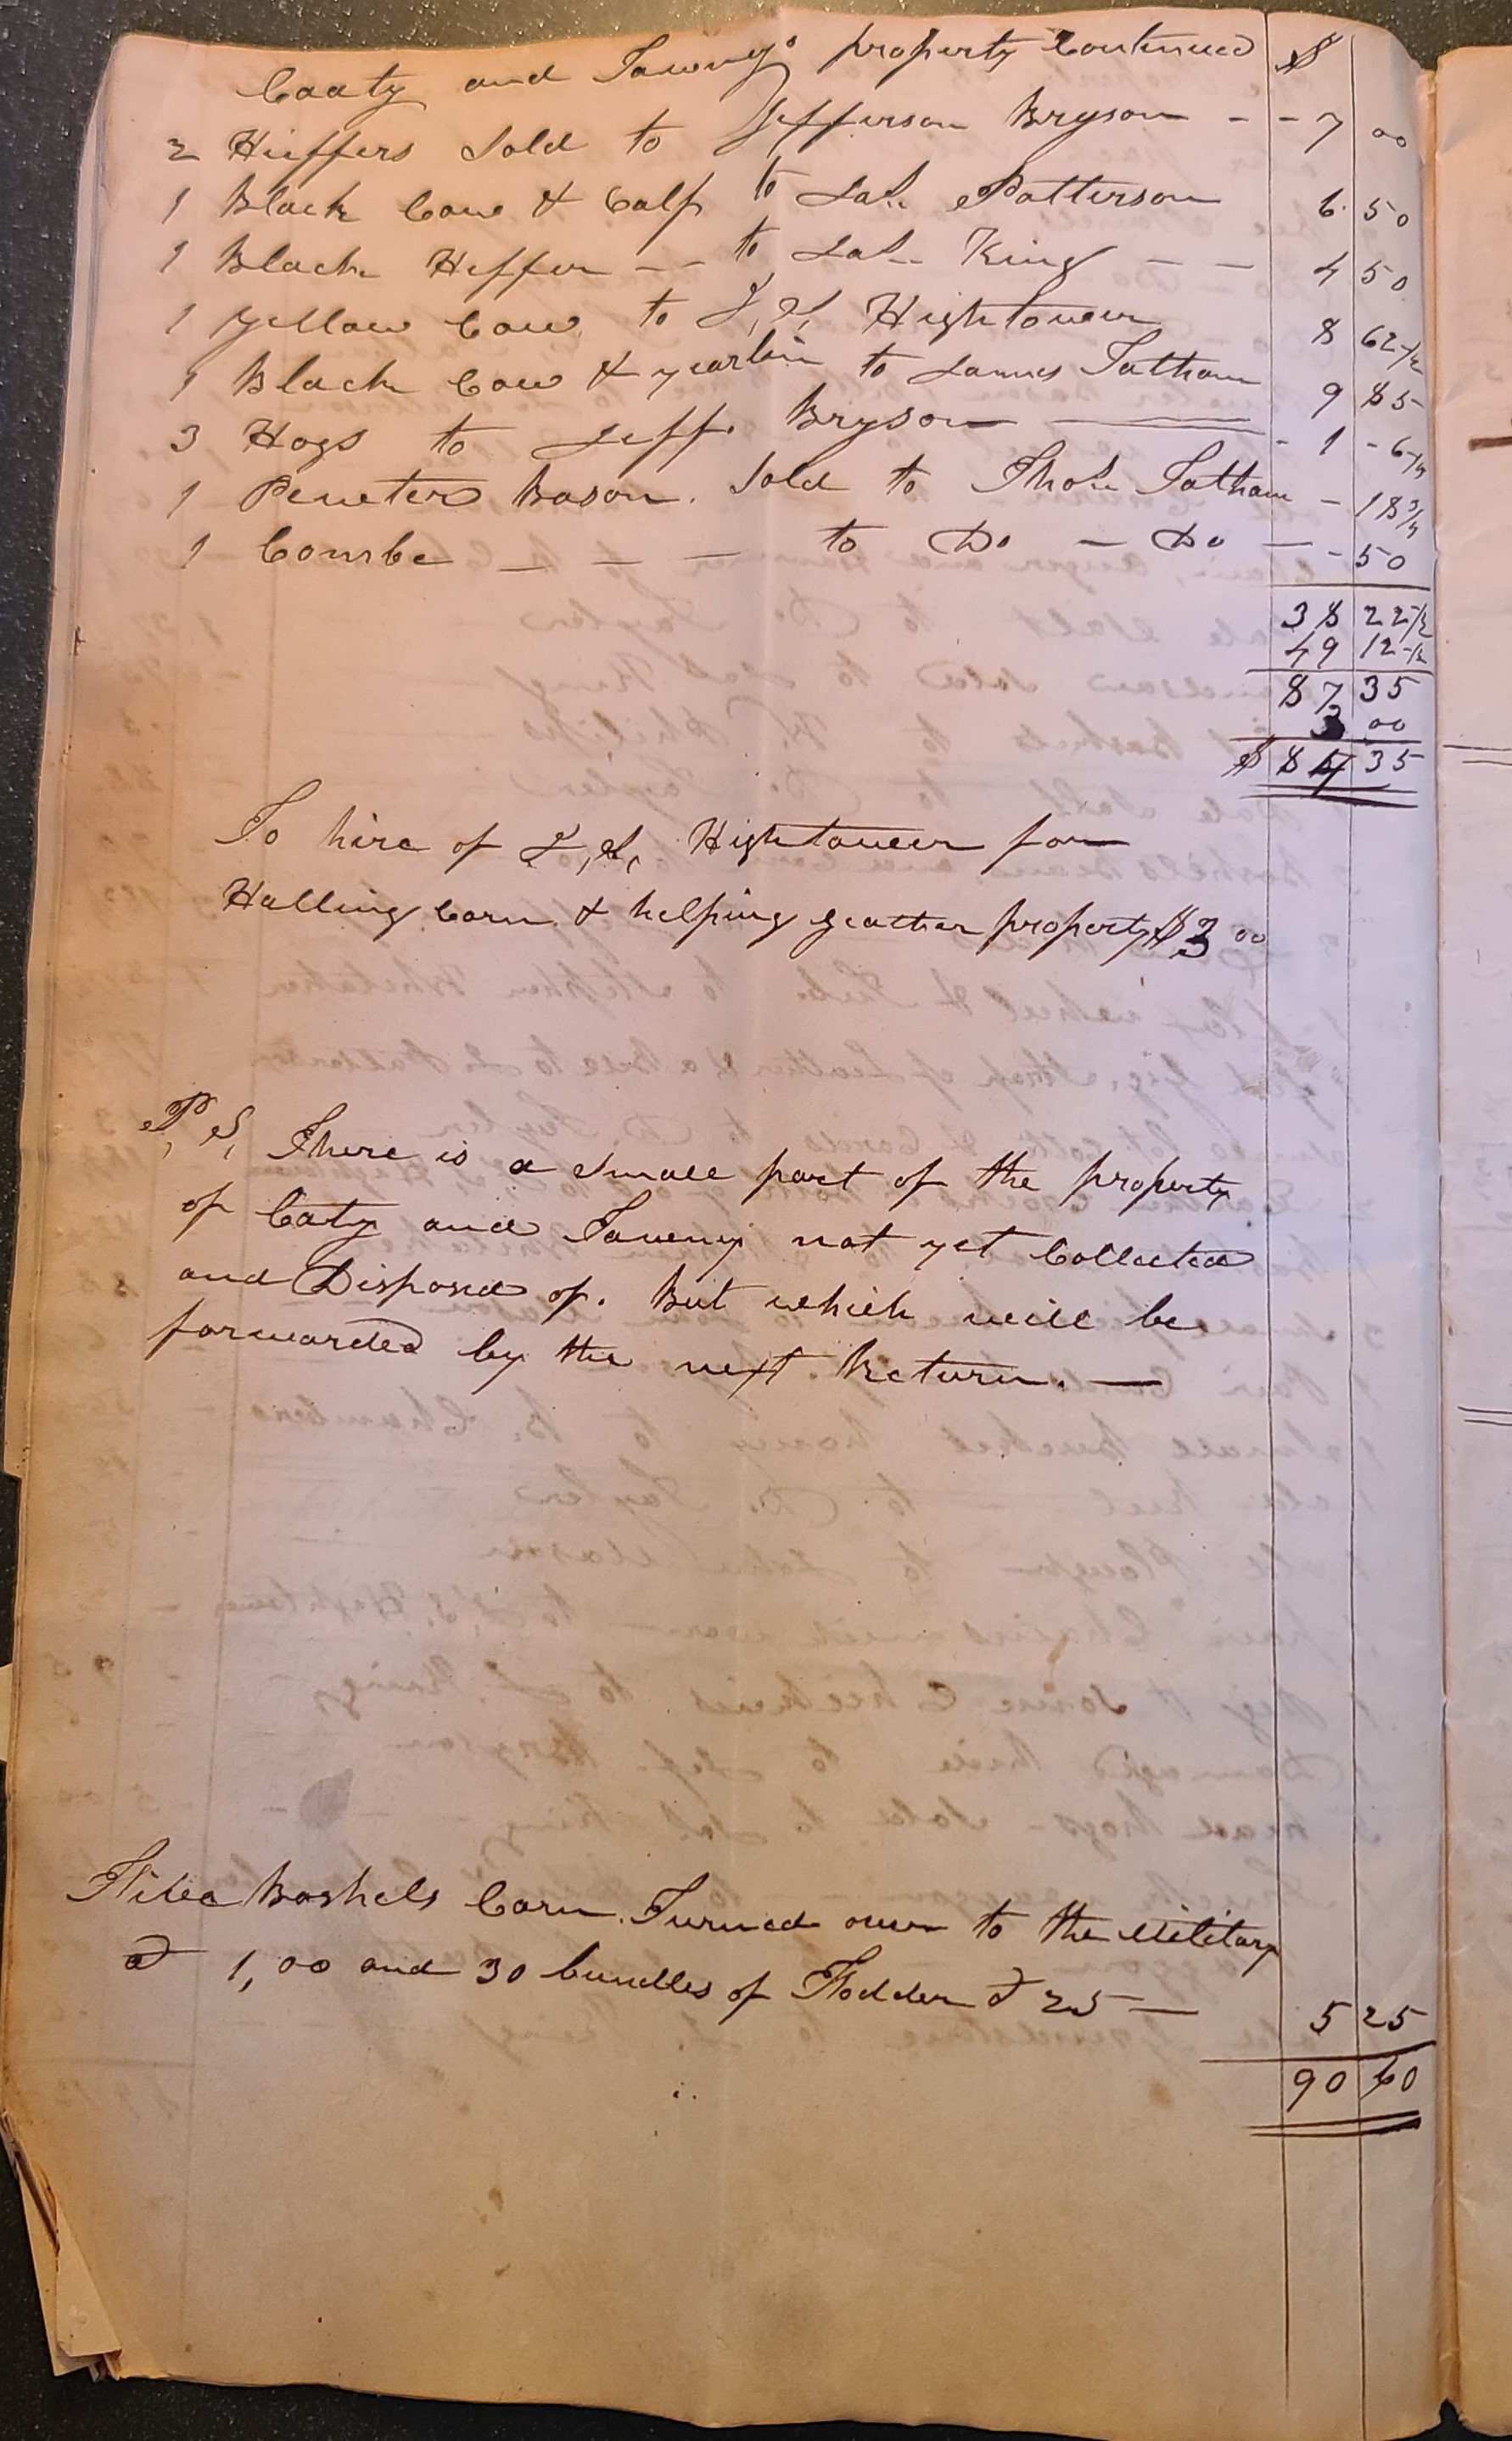 Caaty and Tawney's property Continued $
2 Hieffers Sold to Jefferson Bryson - - 7 00
1 Black Cow & Calf to Jas. Patterson 6.50
1 Black Heffer -- to Jas. King -- 4 50
1 yellow Cow to J, S, Hightower 8 62 1/2
1 Black Cow & yearlin to James Tatham 9 85
3 Hogs to Jeff. Bryson - 1 - 6 1/4
1 Peweter Bason. Sold to Thos. Tatham - 18 3/4
1 Combe - - - to Do - Do - - 50
38 22 1/2
49 12 1/2
87 35
3 00
$ 84 35
To hire of J, S, Hightower for
Halling Corn & helping geather property $ 3 00
P, S, There is a small part of the property
of Caty and Tawney not yet Collected
and Disposed of. But which will be
forwarded by the next Return. —
Five Boshels Corn Turned over to the Military
@ 1,00 and 30 bundles of Fodder @ 25 — 5 25
90 60